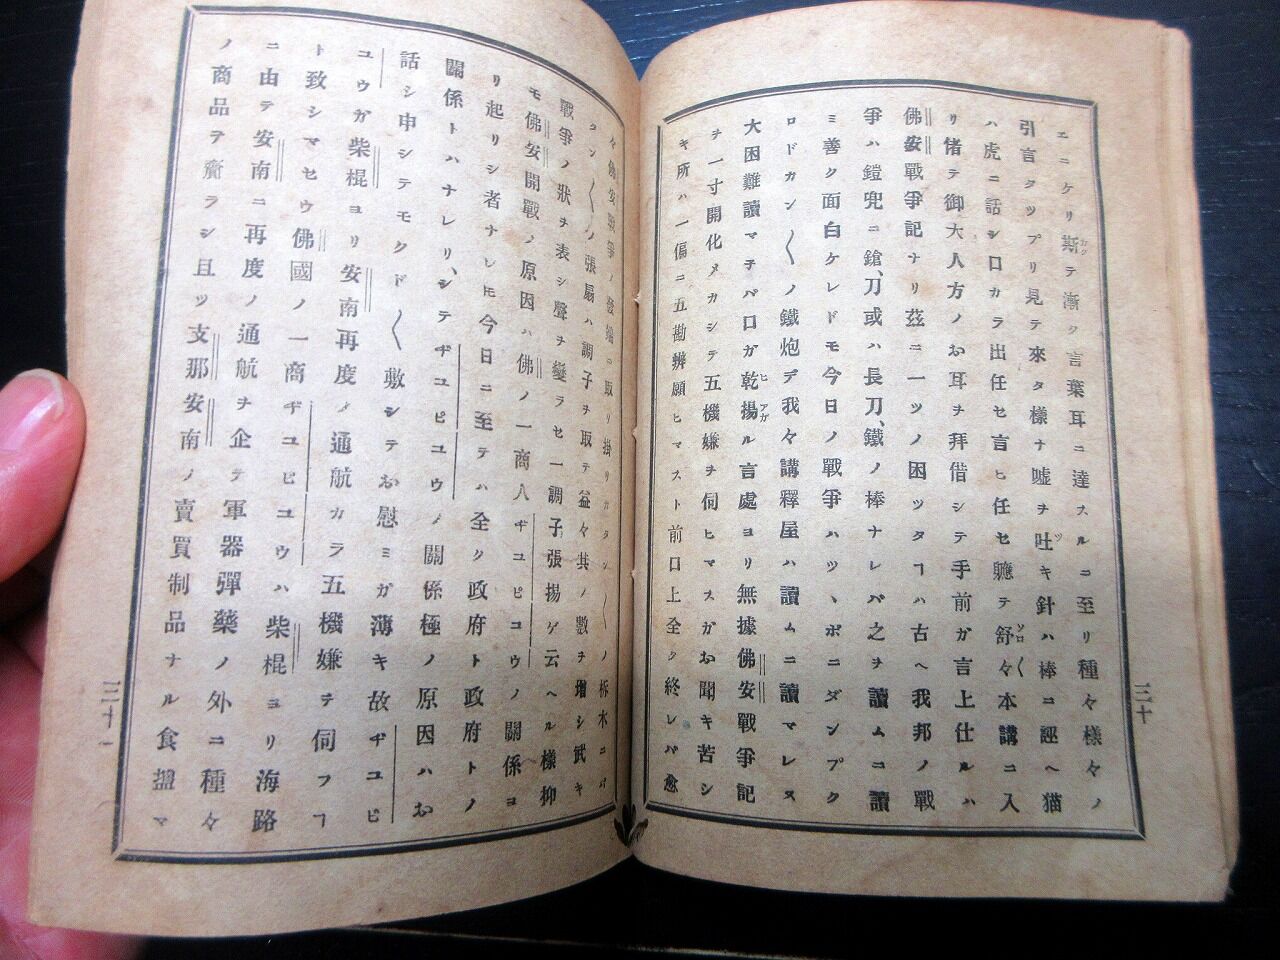 エニケリ斯テ漸ク言葉耳ニ達スルニ至リ種々樣々ノ
引言タツプリ見テ來タ樣ナ嘘ヲ吐キ針ハ棒ニ誣ヘ猫
ハ虎ニ話シ口カラ出任セ言ヒ任セ軈テ舒々本講ニ入
リ偖テ御大人方ノお耳ヲ拜借シテ手前ガ言上仕ルハ
佛安戰爭記ナリ茲ニ一ツノ困ツタヿハ古ヘ我邦ノ戰
爭ハ鎧兜ニ鎗、刀或ハ長刀、鐵ノ棒ナレバ之ヲ讀ムニ讀
ミ善ク面白ケレドモ今日ノ戰爭ハツヽポニダンブク
ロドガン〱ノ鐵炮デ我々講釋屋ハ讀ムニ讀マレヌ
大困難讀マヌ子バ口ガ乾揚ル言處ヨリ無據佛安戰爭記
ヲ一寸開化メカシテ五機嫌ヲ伺ヒマスガお聞キ苦シ
キ所ハ一偏ニ五勘辨願ヒマスト前口上全ク終レバ愈
三十
々佛安戰爭ノ發端ニ取リ掛リカタン〱ノ柝木ニパ
タン〱ノ張扇ハ調子ヲ取テ益々其ノ數ヲ增シ武キ
戰爭ノ狀ヲ表シ聲ヲ變ラセ一調子張揚ゲ云ヘル樣抑
モ佛安開戰ノ原因ハ佛ノ一商人ヂユピユウノ關係ヨ
リ起リシ者ナレ𪜈今日ニ至テハ全ク政府ト政府トノ
關係トハナレリ、シテヂユピユウノ關係極ノ原因ハお
話シ申シテモクド〱敷シテお慰ミガ薄キ故ヂユピ
ユウガ柴棍ヨリ安南再度ノ通航カラ五機嫌テ伺フヿ
ト致シマセウ佛國ノ一商ヂユピユウハ柴棍ヨリ海路
ニ由テ安南ニ再度ノ通航ヲ企テ軍器彈藥ノ外ニ種々
ノ商品ヲ齎ラシ且ツ支那安南ノ賣買制品ナル食鹽マ
三十一